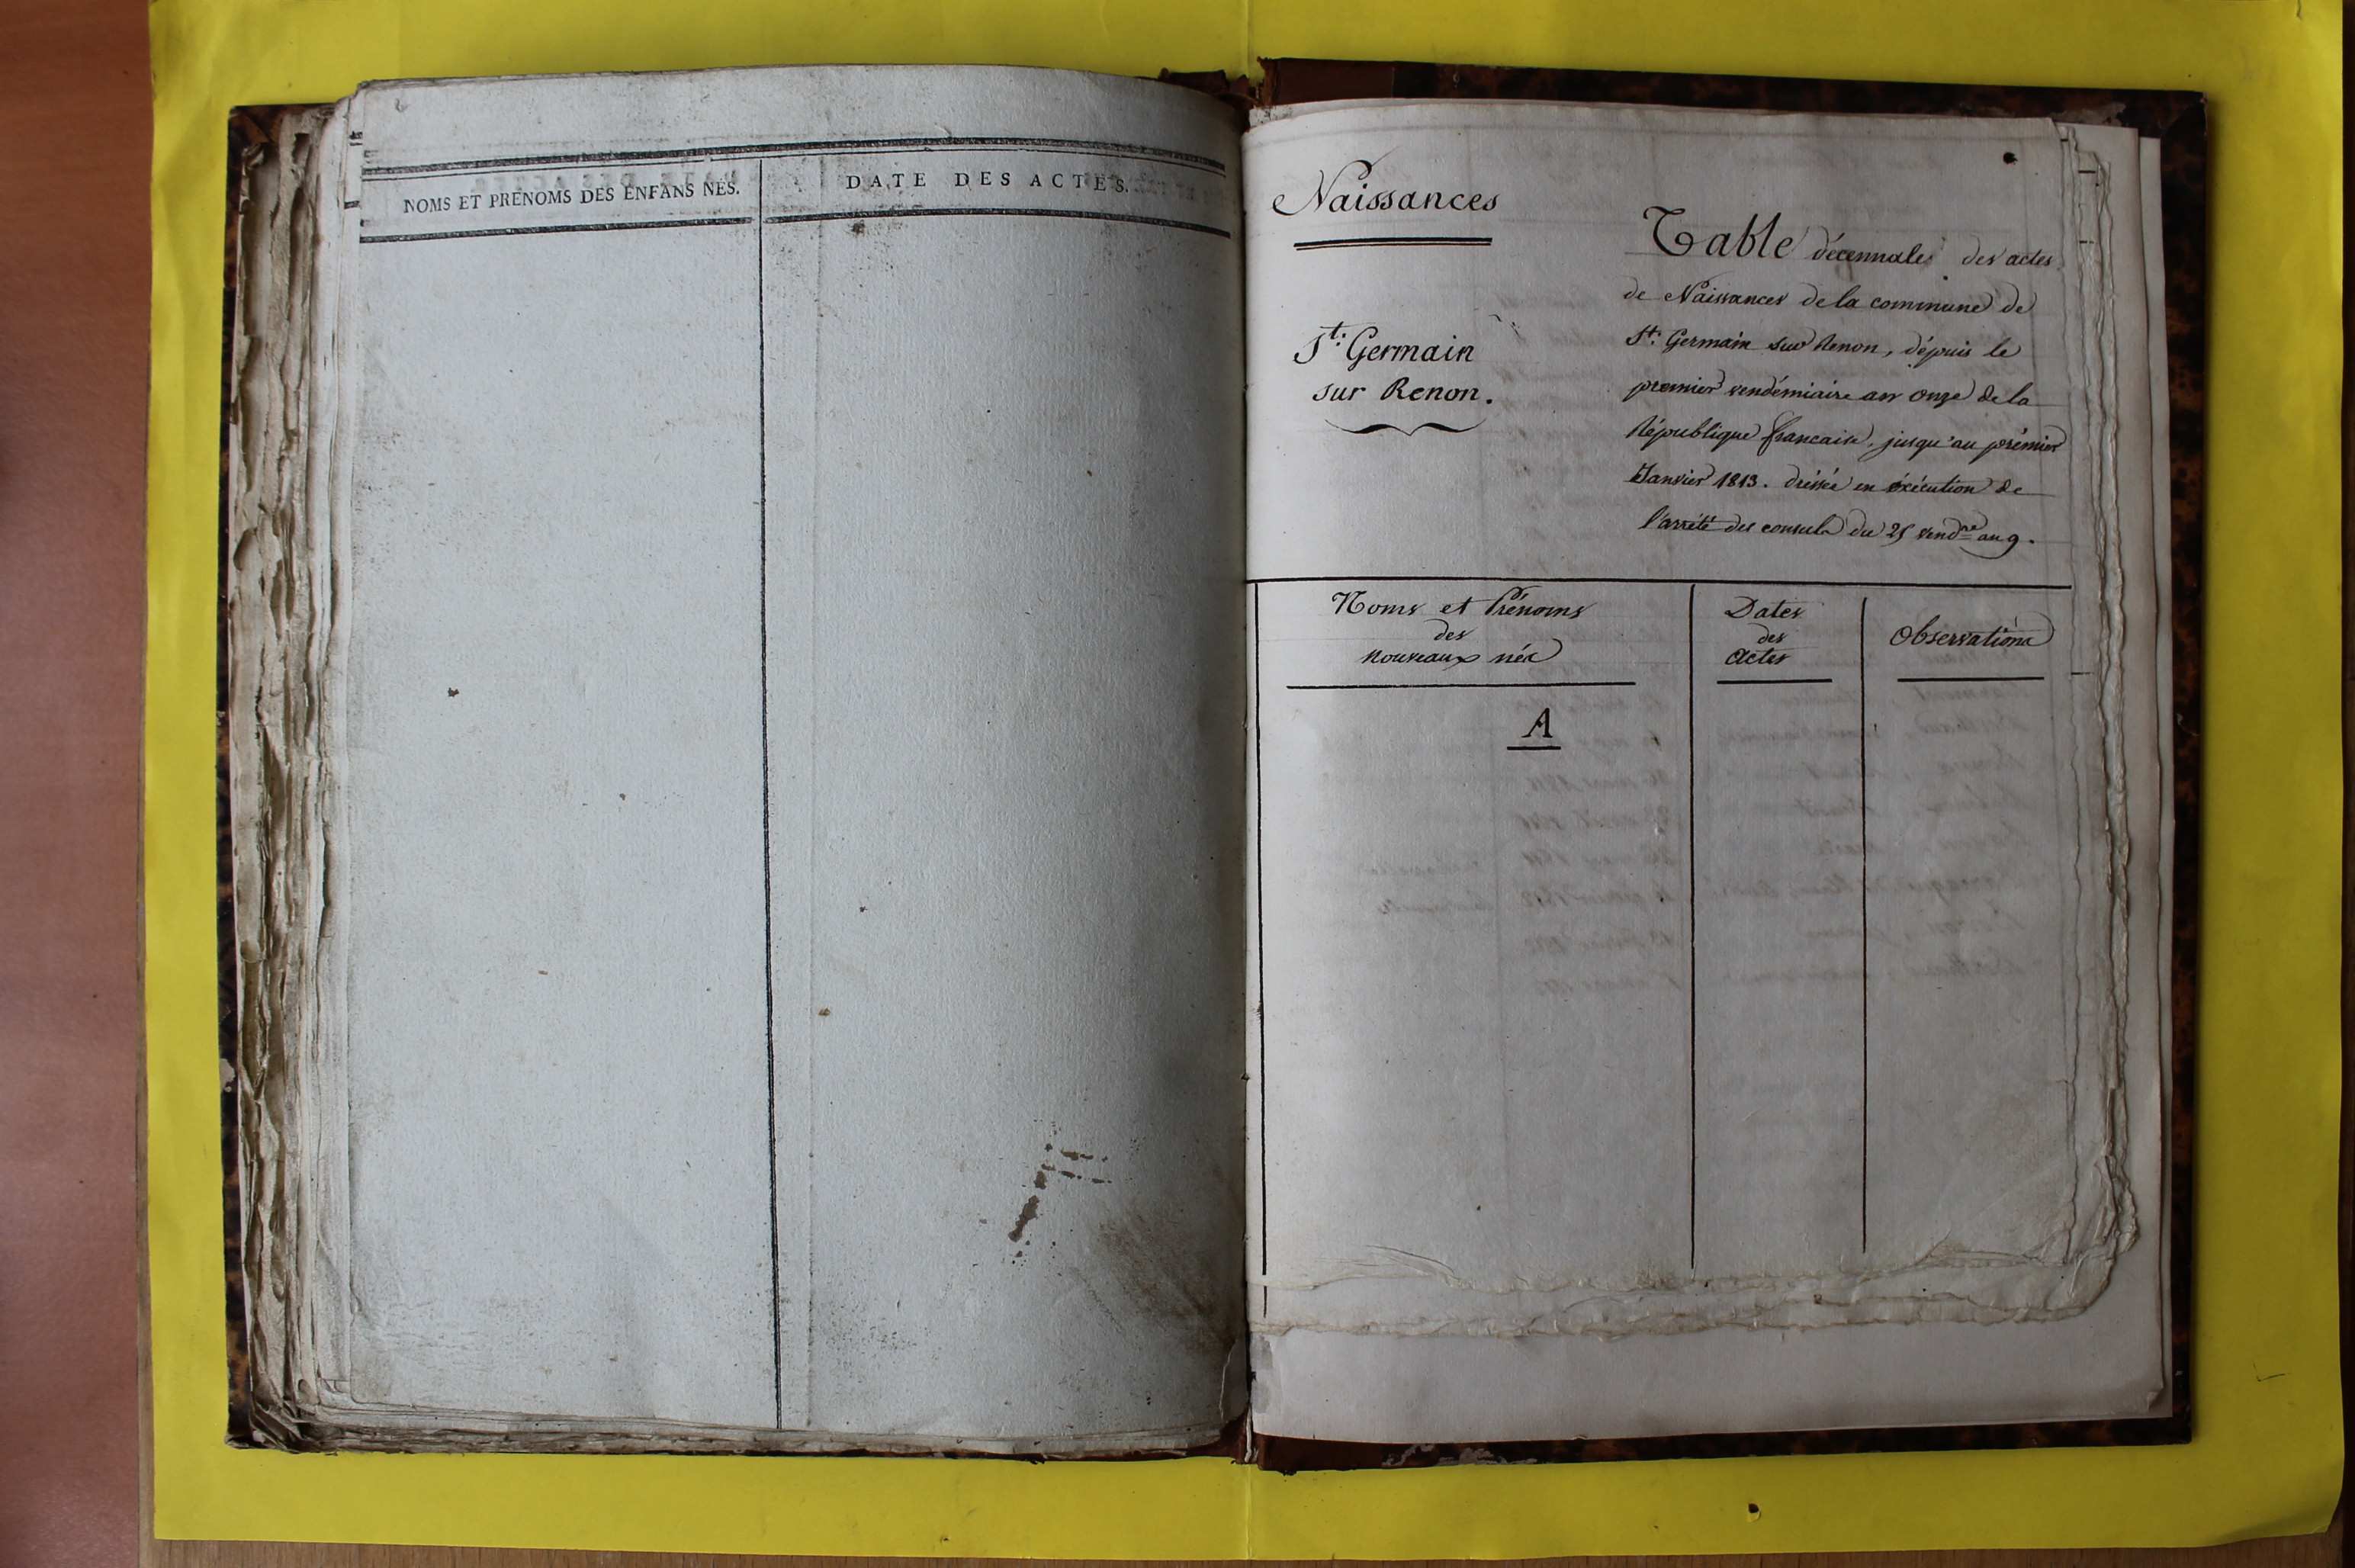 NOMS ET PRÉNOMS DES ENFANS NÉS.
DATE DES ACTES.
Naissances
St: Germain
sur Renon.
Table décennale des actes
de Naissances de la commune de
St: Germain sur Renon, dépuis le
premier vendémiaire an onze de la
République francaise, jusqu'au prémier
Janvier 1813. dréssée en éxécution de
l'arrêté des consuls du 25 vendre an 9.
Noms et Prénoms
des
nouveaux nés
Dates
des
actes
Observations
A